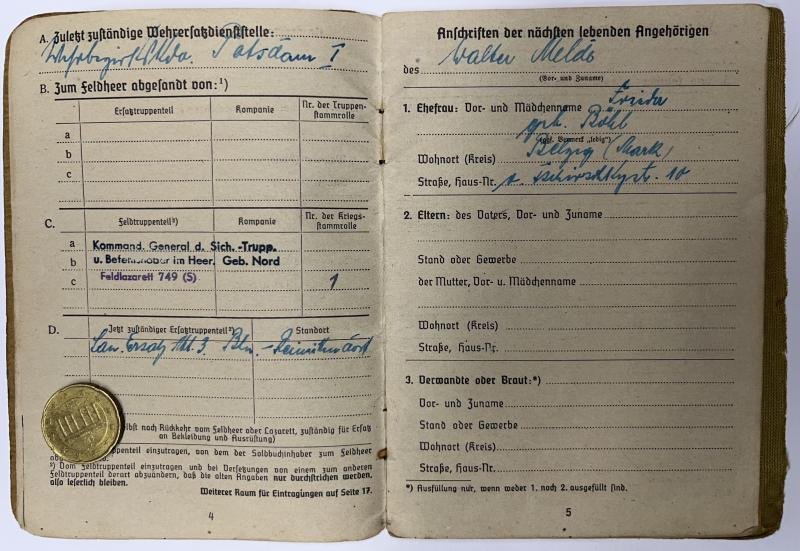 A. Zuletzt zuständige Wehrersatzdienststelle:
Wehrbezirkskdo. Potsdam I
B. Zum Feldheer abgesandt von:¹)
Ersatztruppenteil Kompanie Nr. der Truppen-
stammrolle
a
b
c
C. Feldtruppenteil²) Kompanie Nr. der Kriegs-
stammrolle
a Kommand. General d. Sich.-Trupp.
b u. Befehlshaber im Heer. Geb. Nord
c Feldlazarett 749 (S) 1
D. Jetzt zuständiger Ersatztruppenteil²) Standort
San. Ersatz Abt. 3 Bln.-
selbst nach Rückkehr vom Feldheer oder Lazarett, zuständig für Ersatz
an Bekleidung und Ausrüstung)
einzutragen, von dem der Soldbuchinhaber zum Feldheer
²) Dem Feldtruppenteil einzutragen und bei Versetzungen von einem zum anderen
Feldtruppenteil derart abzuändern, daß die alten Angaben nur durchstrichen werden,
also leserlich bleiben.
Weiterer Raum für Eintragungen auf Seite 17.
4
Anschriften der nächsten lebenden Angehörigen
des Walter
(Vor- und Zuname)
1. Ehefrau: Vor- und Mädchenname Frieda
geb. Böhl
(ggf. Vermerk „ledig")
Wohnort (Kreis) Belzig (Mark)
Straße, Haus-Nr. 10
2. Eltern: des Vaters, Vor- und Zuname
Stand oder Gewerbe
der Mutter, Vor- u. Mädchenname
Wohnort (Kreis)
Straße, Haus-Nr.
3. Verwandte oder Braut:*)
Vor- und Zuname
Stand oder Gewerbe
Wohnort (Kreis)
Straße, Haus-Nr.
*) Ausfüllung nur, wenn weder 1. noch 2. ausgefüllt sind.
5